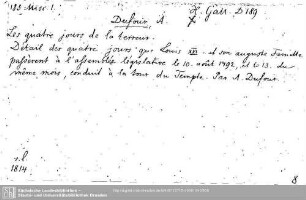 Dufour, A.
Les quatre jours de la terreur.
Détail des quatre jours que Louis XVI. et son auguste famille
passèrent à l'assemblée législative le 10. août 1792, et le 13. du
même mois, conduit à la tour du Temple. Par A. Dufour.
s.l.
1814
8
Sächsische Landesbibliothek -
Staats- und Universitätsbibliothek Dresden